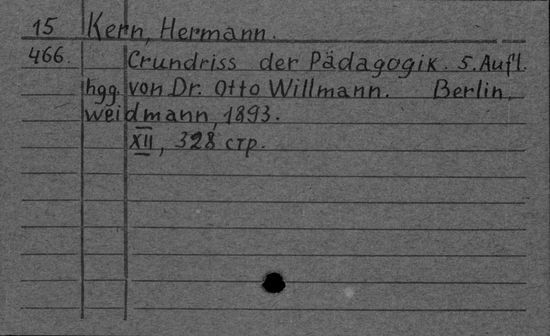 15 Kern, Hermann.
466. Crundriss der Pädagogik. 5. Aufl.
hgg. von Dr. Otto Willmann. Berlin,
weidmann, 1893.
XII, 328 стр.